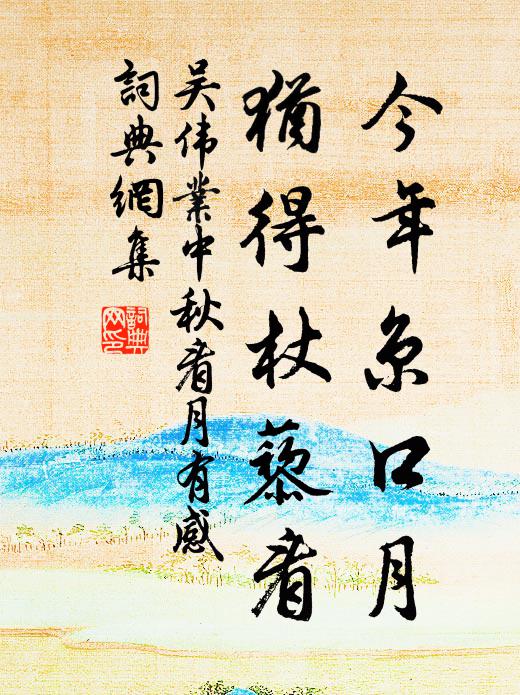 今年京口月
猶得杖藜看
吴伟業中秋看月有感
詞典網集
詞典网印